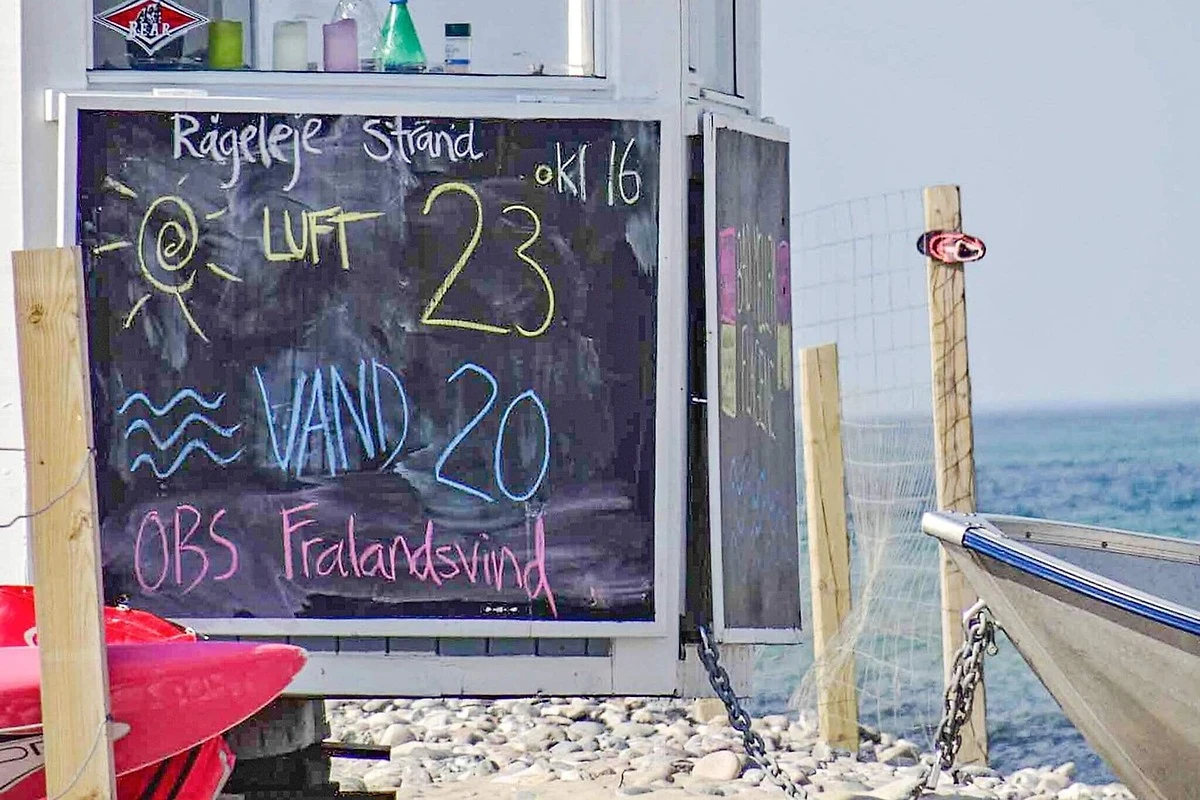 BEAR
Rågeleje Strand
kl 16
LUFT 23
VAND 20
OBS Fralandsvind